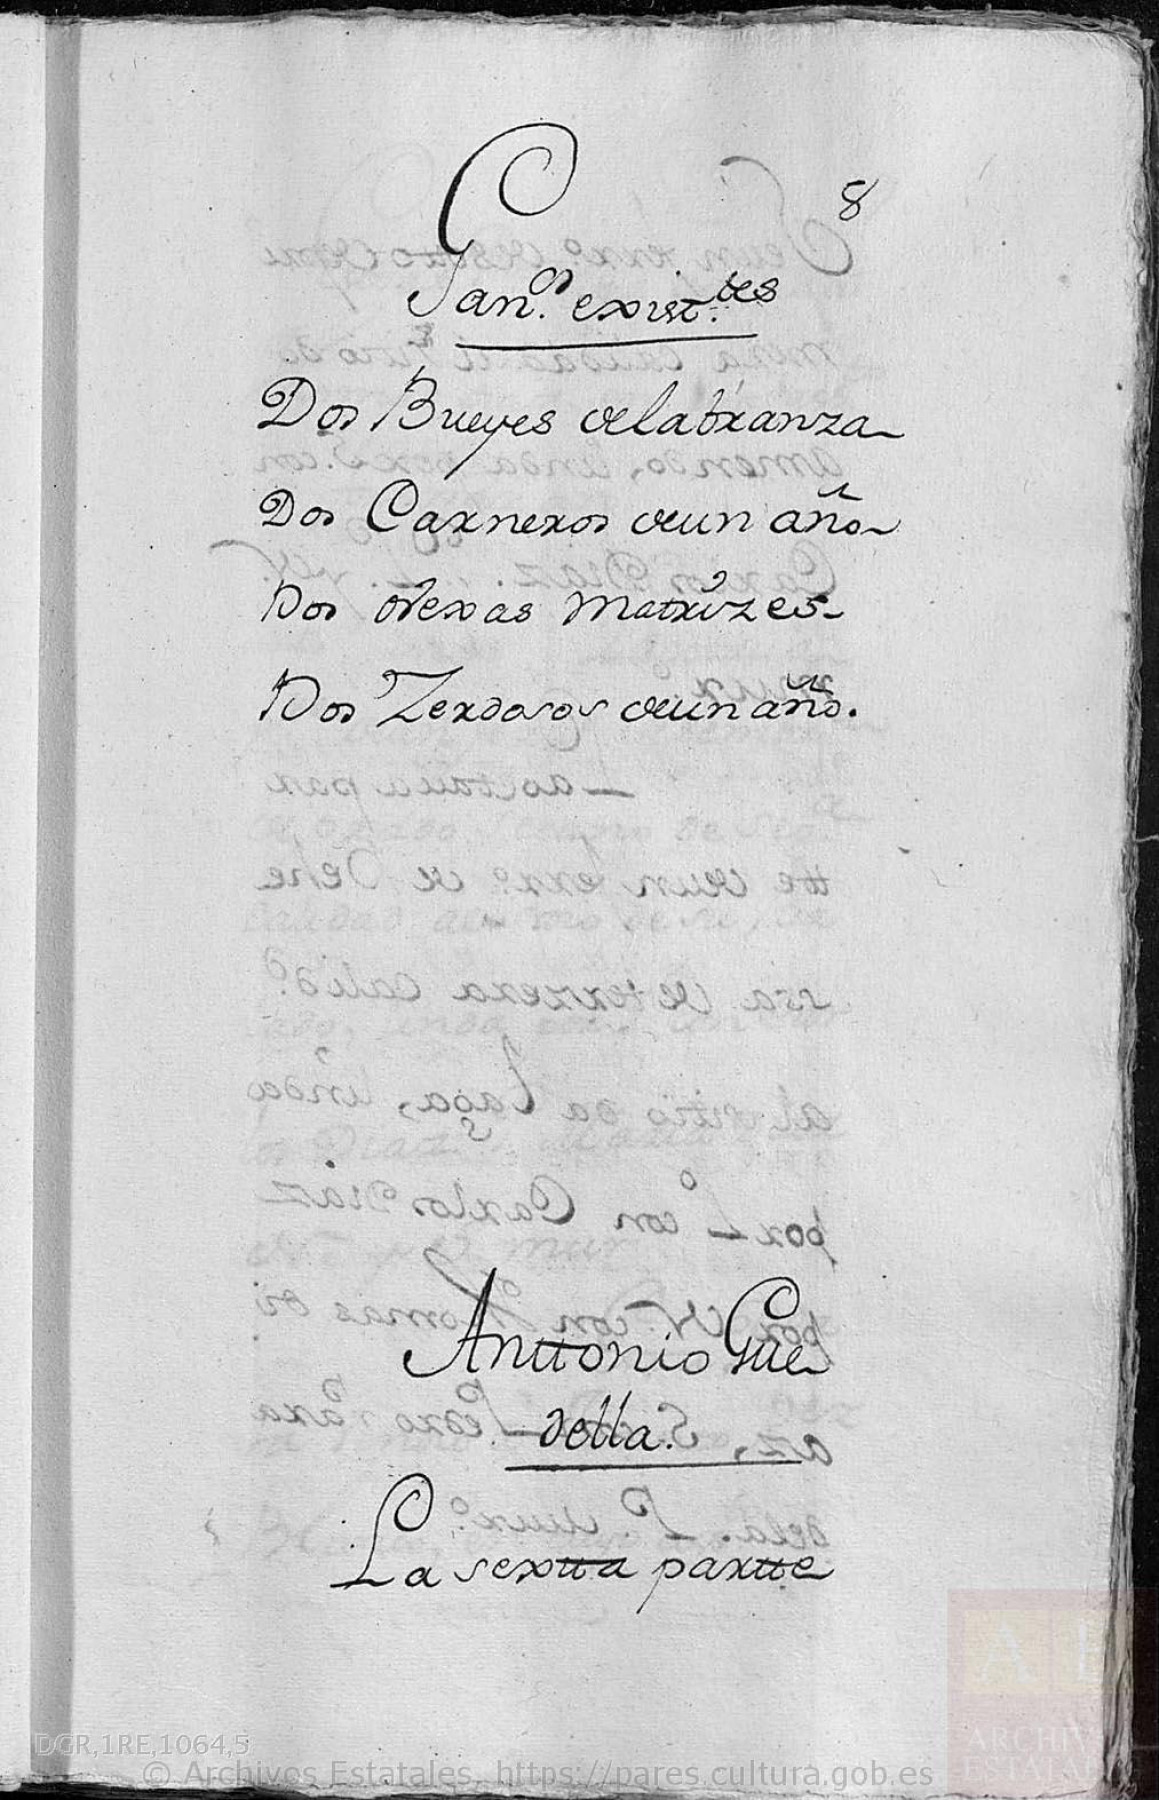 8
Gan.º exist.tes
Dos Bueyes de labranza
Dos Carneros de un año
Dos ovexas matrizes
Dos Zerdosos de un año.
Anttonio Gue
della.
La sextta partte
DGR,1RE,1064,5
© Archivos Estatales, https://pares.cultura.gob.es
ARCHIVOS
ESTATALES